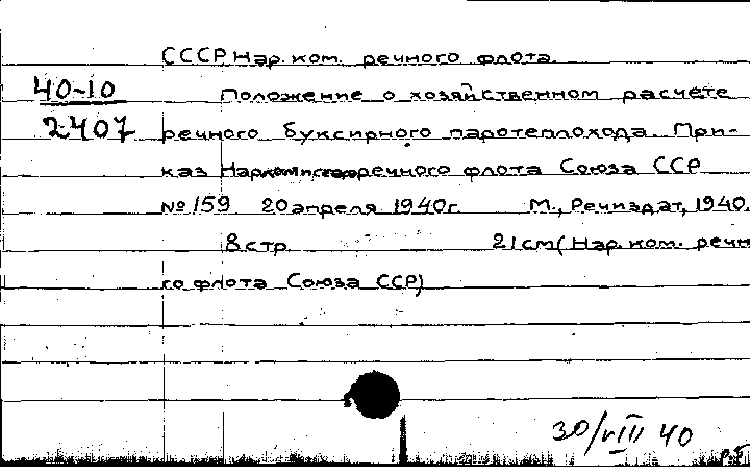 СССР Нар. ком. речного флота.
40-10
2407
Положение о хозяйственном расчёте
речного буксирного паротеплохода. При-
каз Наркомата речного флота Союза ССР
№ 159 20 апреля 1940г. М., Речиздат, 1940.
8 стр. 21 см (Нар. ком. речн
го флота Союза ССР)
30/VIII 40